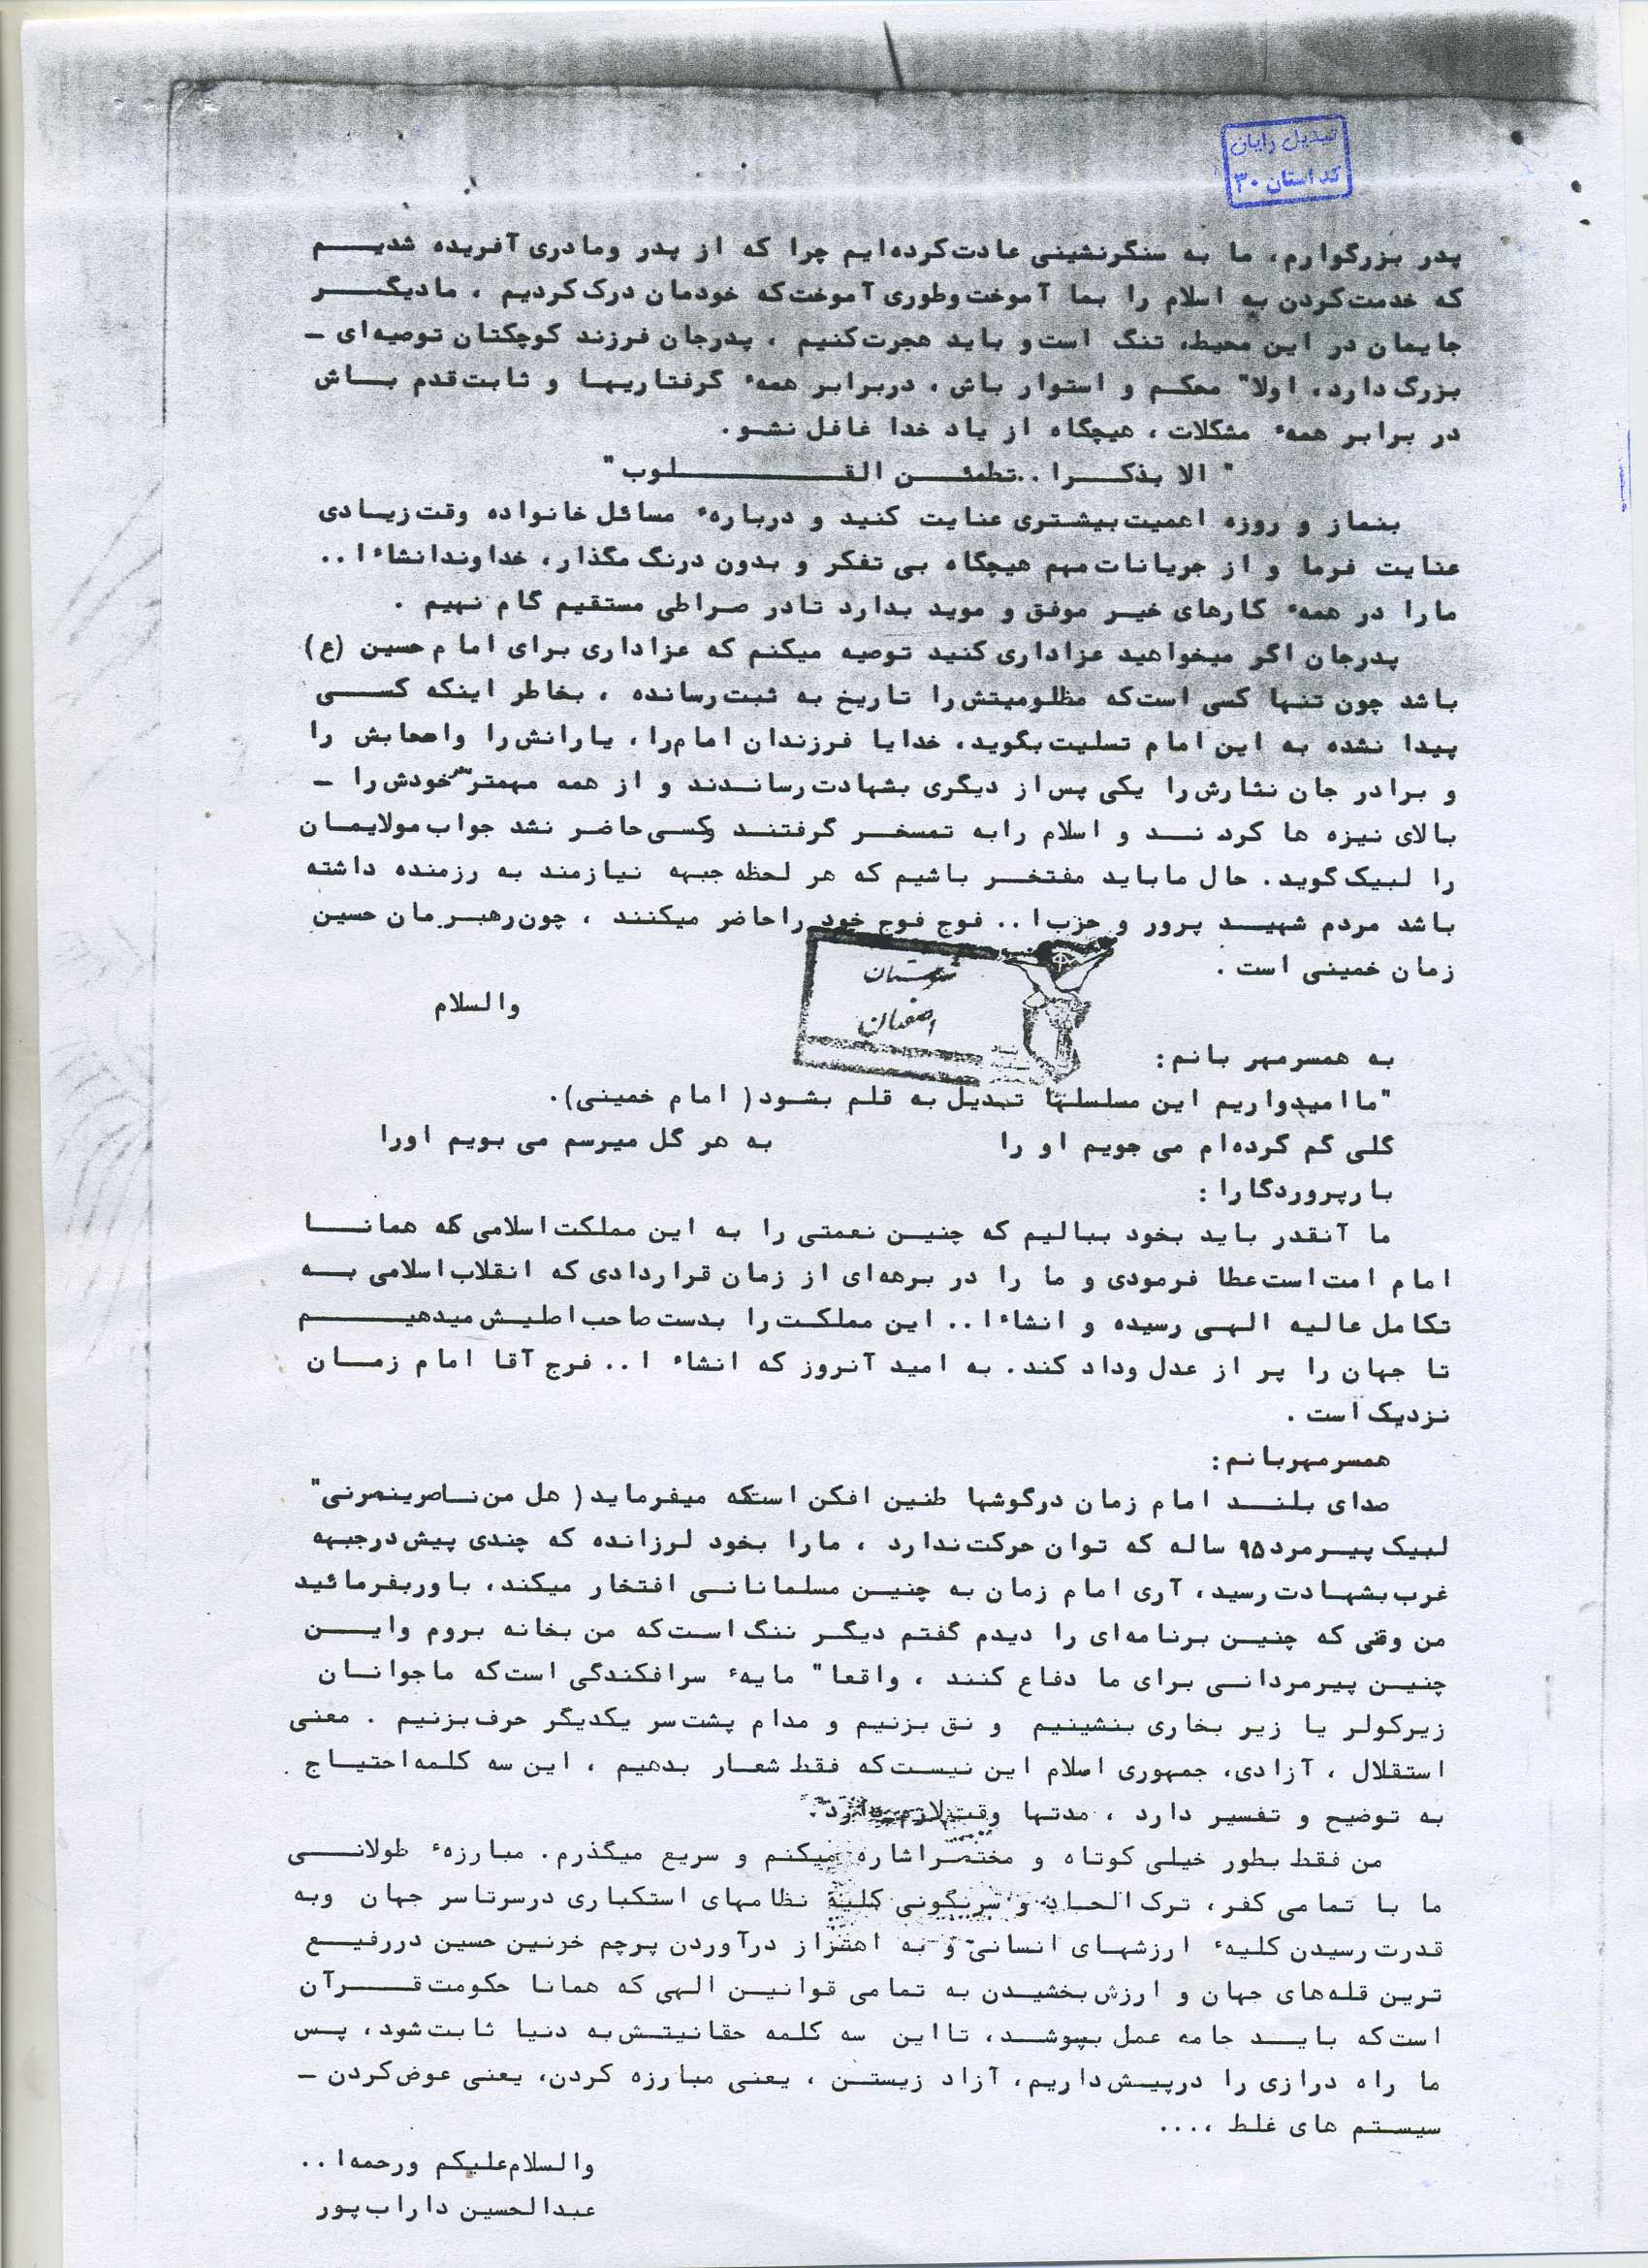 تبدیل رایان
کد استان ۳۰
پدر بزرگوارم، ما به سنگرنشینی عادت کرده‌ایم چرا که از پدر ومادری آفریده شدیـــم
که خدمت کردن به اسلام را بما آموخت وطوری آموخت که خودمان درک کردیم ، مادیگـــر
جایمان در این محیط، تنگ است و باید هجرت کنیم ، پدرجان فرزند کوچکتان توصیه‌ای ـ
بزرگ دارد، اولا" محکـم و استوار باش ، دربرابر همهٔ گرفتاریهـا و ثابت قدم بــاش
در برابر همهٔ مشکلات ، هیچگاه از یاد خدا غافل نشـو.
" الا بذکـــرا ..تطمئـــن القــــــــلوب"
بنماز و روزه اهمیت بیشتری عنایت کنید و دربارهٔ مسائل خانواده وقت زیـادی
عنایت فرما و از جریانات مهم هیچگاه بی تفکر و بدون درنگ مگذار، خداوندانشاء ا..
مارا در همهٔ کارهای خیـر موفق و موید بدارد تادر صراطی مستقیم گام نهیم .
پدرجان اگر میخواهید عزاداری کنید توصیه میکنم که عزاداری برای امام حسین (ع)
باشد چون تنهـا کسی است که مظلومیتش را تاریخ به ثبت رسانده ، بخاطر اینکه کســی
پیدا نشده به این امام تسلیت بگوید، خدایا فرزندان امام را، یارانش را واصحابش را
و برادر جان نثارش را یکی پس از دیگری بشهادت رسانـدند و از همه مهمتر سر خودش را ـ
بالای نیزه ها کردنــد و اسلام رابه تمسخـر گرفتنـد وکسی حاضر نشد جواب مولایمـان
را لبیک گوید. حال مابایـد مفتخـر باشیم که هر لحظه جبهه نیازمند به رزمنده داشته
باشد مردم شهیــد پرور و حزب ا .. فوج فوج خود راحاضر میکنند ، چون رهبـرمان حسین
زمان خمینی است .
شهرستان
اصفهان
والسلام
به همسرمهر بانم:
"ماامیدواریم این مسلسلها تبدیل به قلم بشـود( امام خمینی).
گلی گم کرده‌ام می جویم او را به هر گل میرسم می بویم اورا
بارپروردگارا :
ما آنقدر باید بخود ببالیم که چنیـن نعمتی را به این مملکت اسلامی که همانــا
امام امت است عطا فرمودی و ما را در برهه‌ای از زمان قراردادی که انقلاب اسلامی بــه
تکامل عالیه الهـی رسیده و انشاء ا .. این مملکـت را بدست صاحب اصلیـش میدهیــــم
تا جهان را پر از عدل وداد کند. به امید آنروز که انشاء ا.. فرج آقا امام زمــان
نزدیک است .
همسرمهربانم:
صدای بلنــد امام زمان درگوشها طنین افکن است که میفرماید( هل من نـاصرینصرنی"
لبیک پیـرمرد۹۵ ساله که توان حرکت ندارد ، مارا بخود لرزانده که چندی پیش درجبهه
غرب بشهـادت رسید، آری امام زمان به چنیـن مسلمانانـی افتخار میکند، باوربفرمائید
من وقتی که چنیـن برنامه‌ای را دیدم گفتم دیگـر ننگ است که من بخانه بروم وایــن
چنیـن پیرمردانـی برای ما دفاع کنند ، واقعا" مایهٔ سرافکندگی است که ماجوانـان
زیرکولر یا زیر بخاری بنشینیم و نق بزنیم و مدام پشت سر یکدیگر حرف بزنیم . معنی
استقلال ، آزادی، جمهوری اسلام این نیسـت که فقط شعـار بدهیم ، این سه کلمه احتیـاج .
به توضیح و تفسیر دارد ، مدتهـا وقت لازم دارد.
من فقط بطور خیلی کوتاه و مختصراشاره میکنم و سریع میگذرم. مبارزهٔ طولانــی
ما با تمامی کفر، ترک الحـاد و سرنگونی کلیهٔ نظامهای استکباری درسرتاسر جهان وبه
قدرت رسیدن کلیهٔ ارزشهـای انسانی و به اهتزاز درآوردن پرچم خونین حسین دررفیــع
ترین قله‌های جهان و ارزش بخشیـدن به تمامی قوانیـن الهی که همانا حکومت قـــرآن
است که بایــد جامه عمل بپوشـد، تااین سه کلمه حقانیتـش به دنیا ثابت شود، پـس
ما راه درازی را درپیـش داریم، آزاد زیستـن ، یعنی مبارزه کردن، یعنی عوض کردن ـ
سیستـم های غلط ،....
والسلام علیکم ورحمه ا ..
عبدالحسین داراب پور